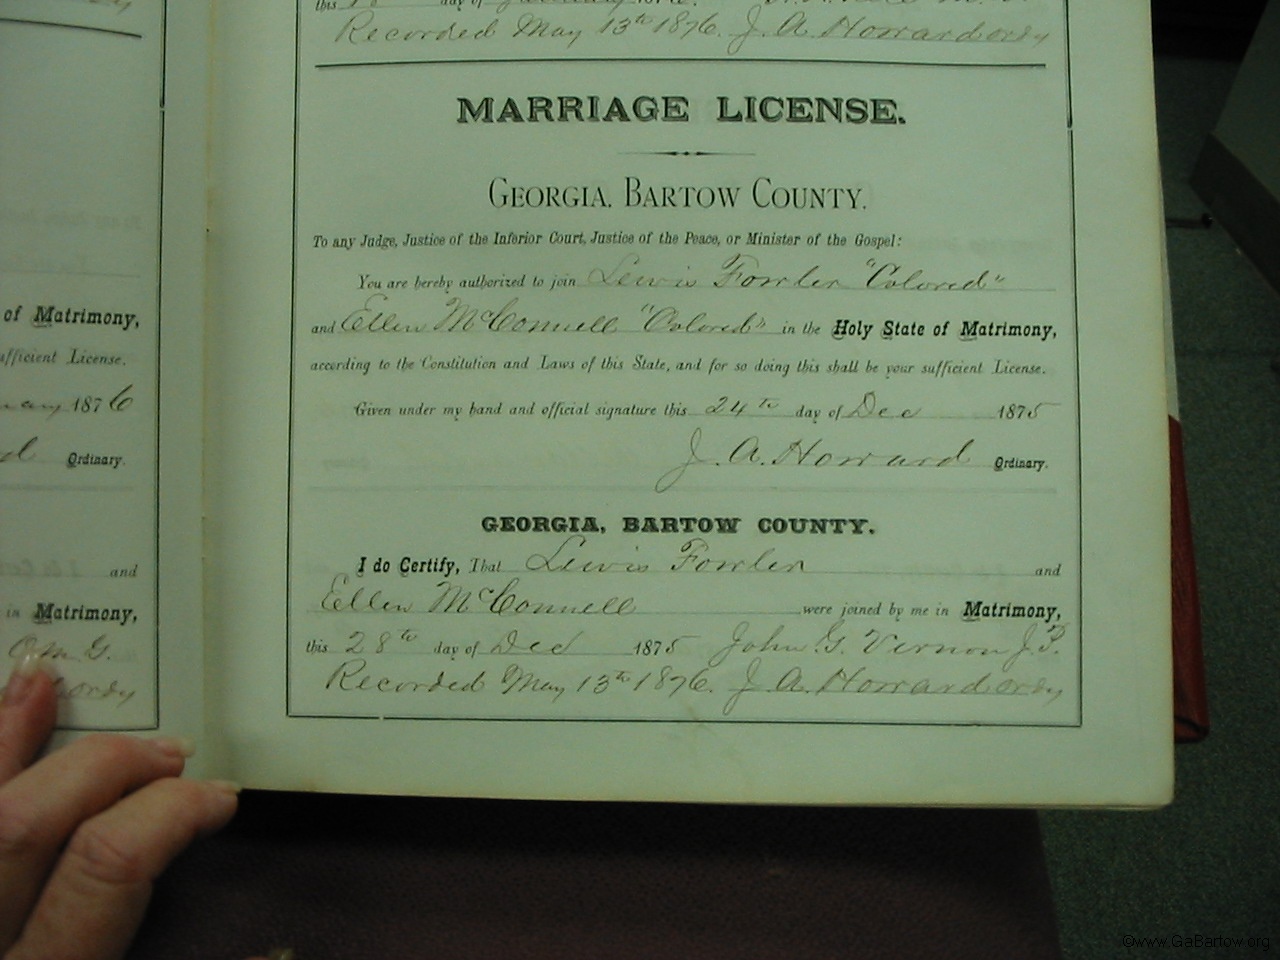 this day of
Recorded May 13th 1876. J. A. Howard ordy
MARRIAGE LICENSE.
GEORGIA, BARTOW COUNTY.
To any Judge, Justice of the Inferior Court, Justice of the Peace, or Minister of the Gospel:
You are hereby authorized to join Lewis Fowler "Colored"
and Ellen McConnell "Colored" in the Holy State of Matrimony,
according to the Constitution and Laws of this State, and for so doing this shall be your sufficient License.
Given under my hand and official signature this 24th day of Dec 1875
J. A. Howard Ordinary.
GEORGIA, BARTOW COUNTY.
I do Certify, That Lewis Fowler and
Ellen McConnell were joined by me in Matrimony,
this 28th day of Dec 1875 John G. Vernon J.P.
Recorded May 13th 1876. J. A. Howard ordy
of Matrimony,
sufficient License.
1876
Ordinary.
and
in Matrimony,
O.M.G.
ordy
©www.GaBartow.org